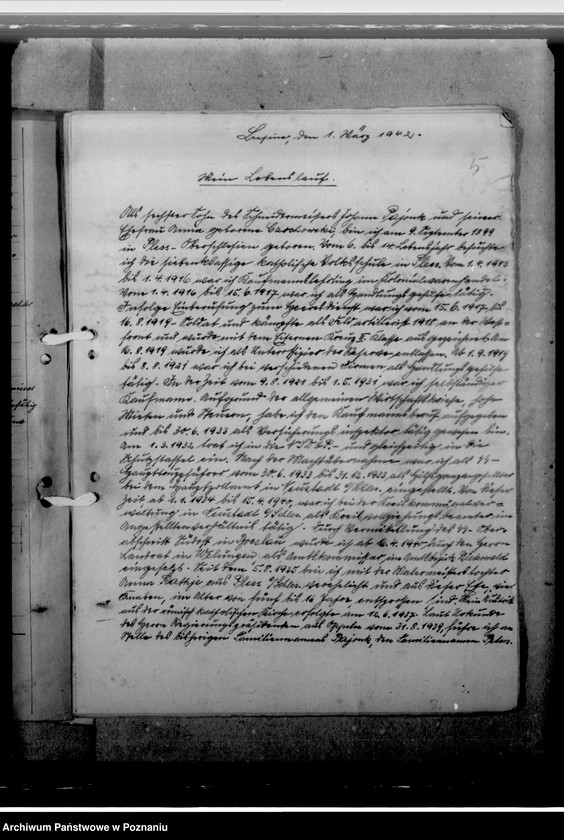 den 1. März 1942.
5
Mein Lebenslauf.
Als sechster Sohn des Schneidermeisters Johann Pajonk und seiner
Ehefrau Anna geborene bin ich am 9. September 1899
in Pless - Oberschlesien geboren. Vom 6. bis 14. Lebensjahr besuchte
ich die siebenklassige katholische Volksschule in Pless. Vom 1.4.1913
bis 1.4.1916 war ich Kaufmannslehrling im
Vom 1.4.1916 bis 15.6.1917 war ich als Handlungsgehilfe tätig.
Infolge Einberufung zum Heeresdienst war ich vom 15.6.1917 bis
16.8.1919 - Soldat und kämpfte als Feldartillerist 1918 an der West-
front und wurde mit dem Eisernen Kreuz II. Klasse ausgezeichnet. Am
16.8.1919 wurde ich als Unteroffizier der Reserve entlassen. Ab 1.9.1919
bis 8.8.1921 war ich bei verschiedenen Firmen als Handlungsgehilfe
tätig. In der Zeit vom 9.8.1921 bis 1.5.1931 war ich selbständiger
Kaufmann. Aufgrund der allgemeinen Wirtschaftskrise, hoher
Mieten und Steuern, habe ich den Kaufmannsberuf aufgegeben
und bis 30.6.1933 als Versicherungsinspektor tätig gewesen bin.
Am 1.3.1932 trat ich in die N.S.D.A.P. und gleichzeitig in die
Schutzstaffel ein. Nach der Machtübernahme war ich als SS-
vom 30.6.1933 bis 31.12.1933 als
bei dem Hauptzollamt in Neustadt O/Schles. eingestellt. Von dieser
Zeit ab 1.1.1934 bis 15.4.1940 war ich bei der Kreiskommunalver-
waltung in Neustadt O/Schles. als Kreisvollziehungsbeamter im
Angestelltenverhältnis tätig. Durch Vermittlung des SS-Ober-
abschnitt Südost in Breslau wurde ich ab 1940 durch den Herrn
Landrat in Welungen als Amtskommissar im Amtsbezirk
eingesetzt. Seit dem bin ich mit der Malermeisterstochter
Anna aus Pless O/Schles. verehelicht und aus dieser Ehe, vier
Knaben, im Alter von fünf bis 16 Jahre entsprossen sind. Mein Austritt
aus der römisch katholischen Kirche erfolgte am 12.6.1937. Laut Urkunde
des Herrn Regierungspräsidenten aus Oppeln vom 31.8.1939, führe ich an
Stelle des bisherigen Familiennamens Pajonk, den Familiennamen
Archiwum Państwowe w Poznaniu